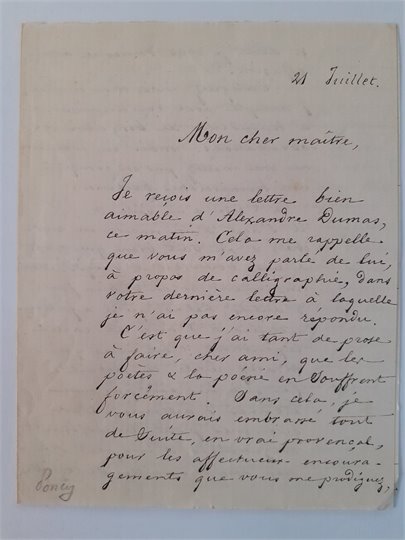 21 Juillet.
Mon cher maître,
Je reçois une lettre bien
aimable d'Alexandre Dumas,
ce matin. Cela me rappelle
que vous m'avez parlé de lui,
à propos de calligraphie, dans
votre dernière lettre à laquelle
je n'ai pas encore répondu.
C'est que j'ai tant de prose
à faire, cher ami, que les
poètes & la poésie en souffrent
forcément. Sans cela, je
vous aurais embrassé tout
de suite, en vrai provençal,
pour les affectueux encoura-
gements que vous me prodiguez,
Poncy